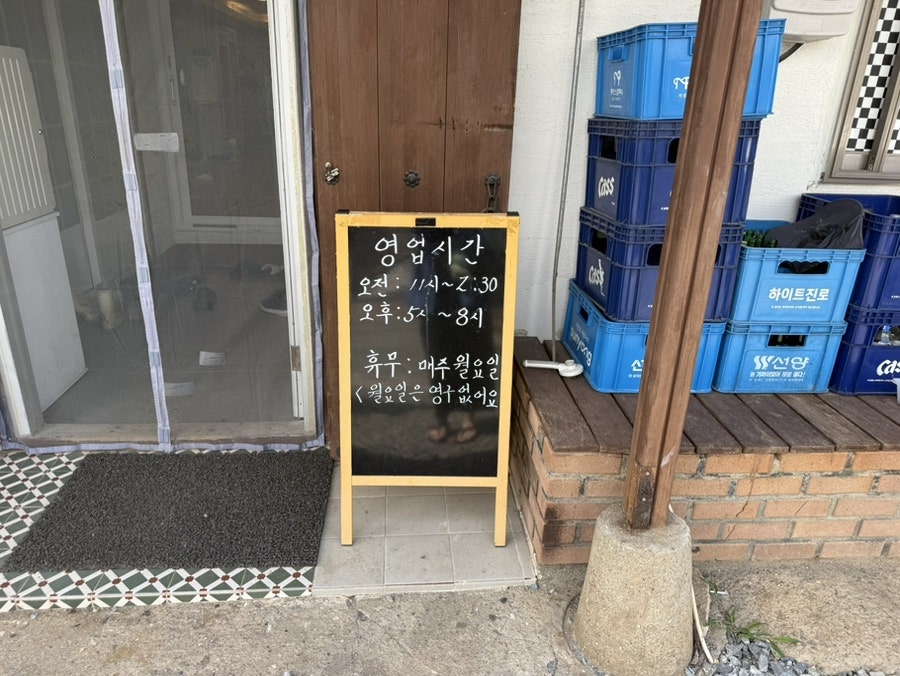 영업시간
오전: 11시~2:30
오후: 5시~8시
휴무: 매주 월요일
<월요일은 영구 없어요
Cass
Cass
하이트진로
선양
Cass